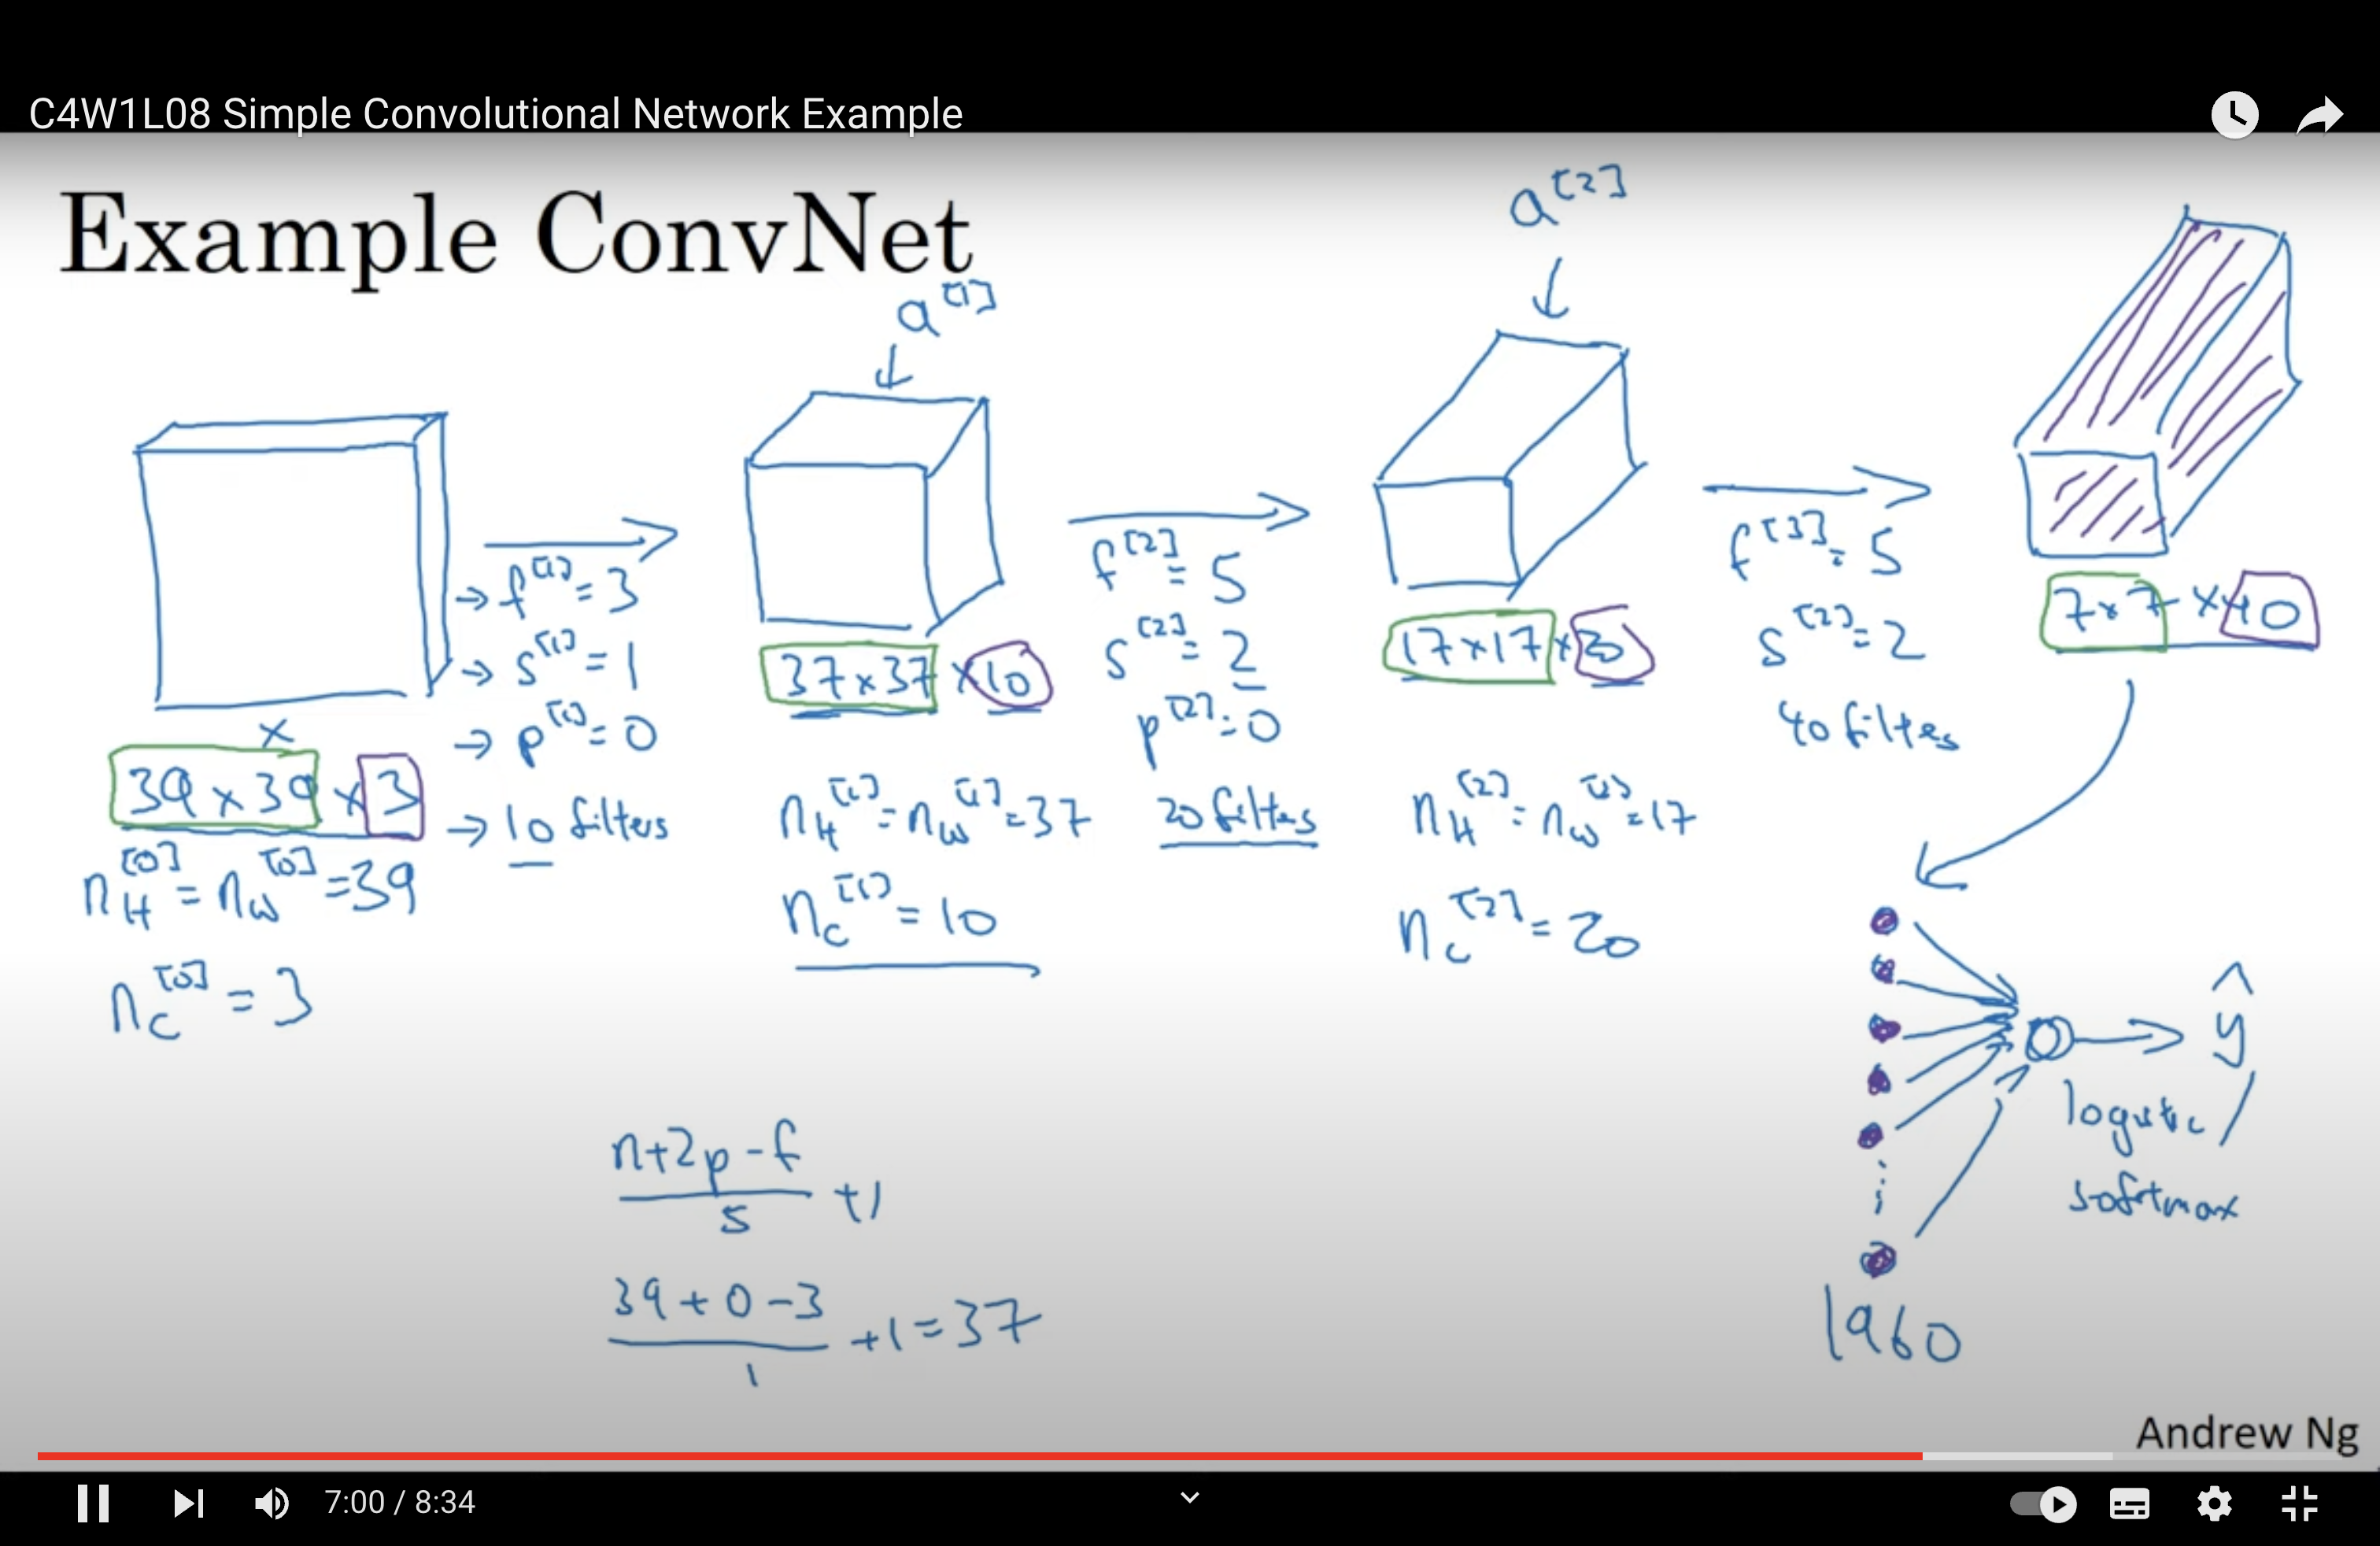 C4W1L08 Simple Convolutional Network Example
Example ConvNet
a^[1]
a^[2]
x
39 x 39 x 3
n_H^[0] = n_W^[0] = 39
n_C^[0] = 3
→ f^[1] = 3
→ s^[1] = 1
→ p^[1] = 0
→ 10 filters
37 x 37 x 10
n_H^[1] = n_W^[1] = 37
n_C^[1] = 10
f^[2] = 5
s^[2] = 2
p^[2] = 0
20 filters
17 x 17 x 20
n_H^[2] = n_W^[2] = 17
n_C^[2] = 20
f^[3] = 5
s^[2] = 2
40 filters
7 x 7 x 40
n+2p-f
s
+1
39+0-3
1
+1=37
ŷ
logistic /
softmax
1960
Andrew Ng
7:00 / 8:34